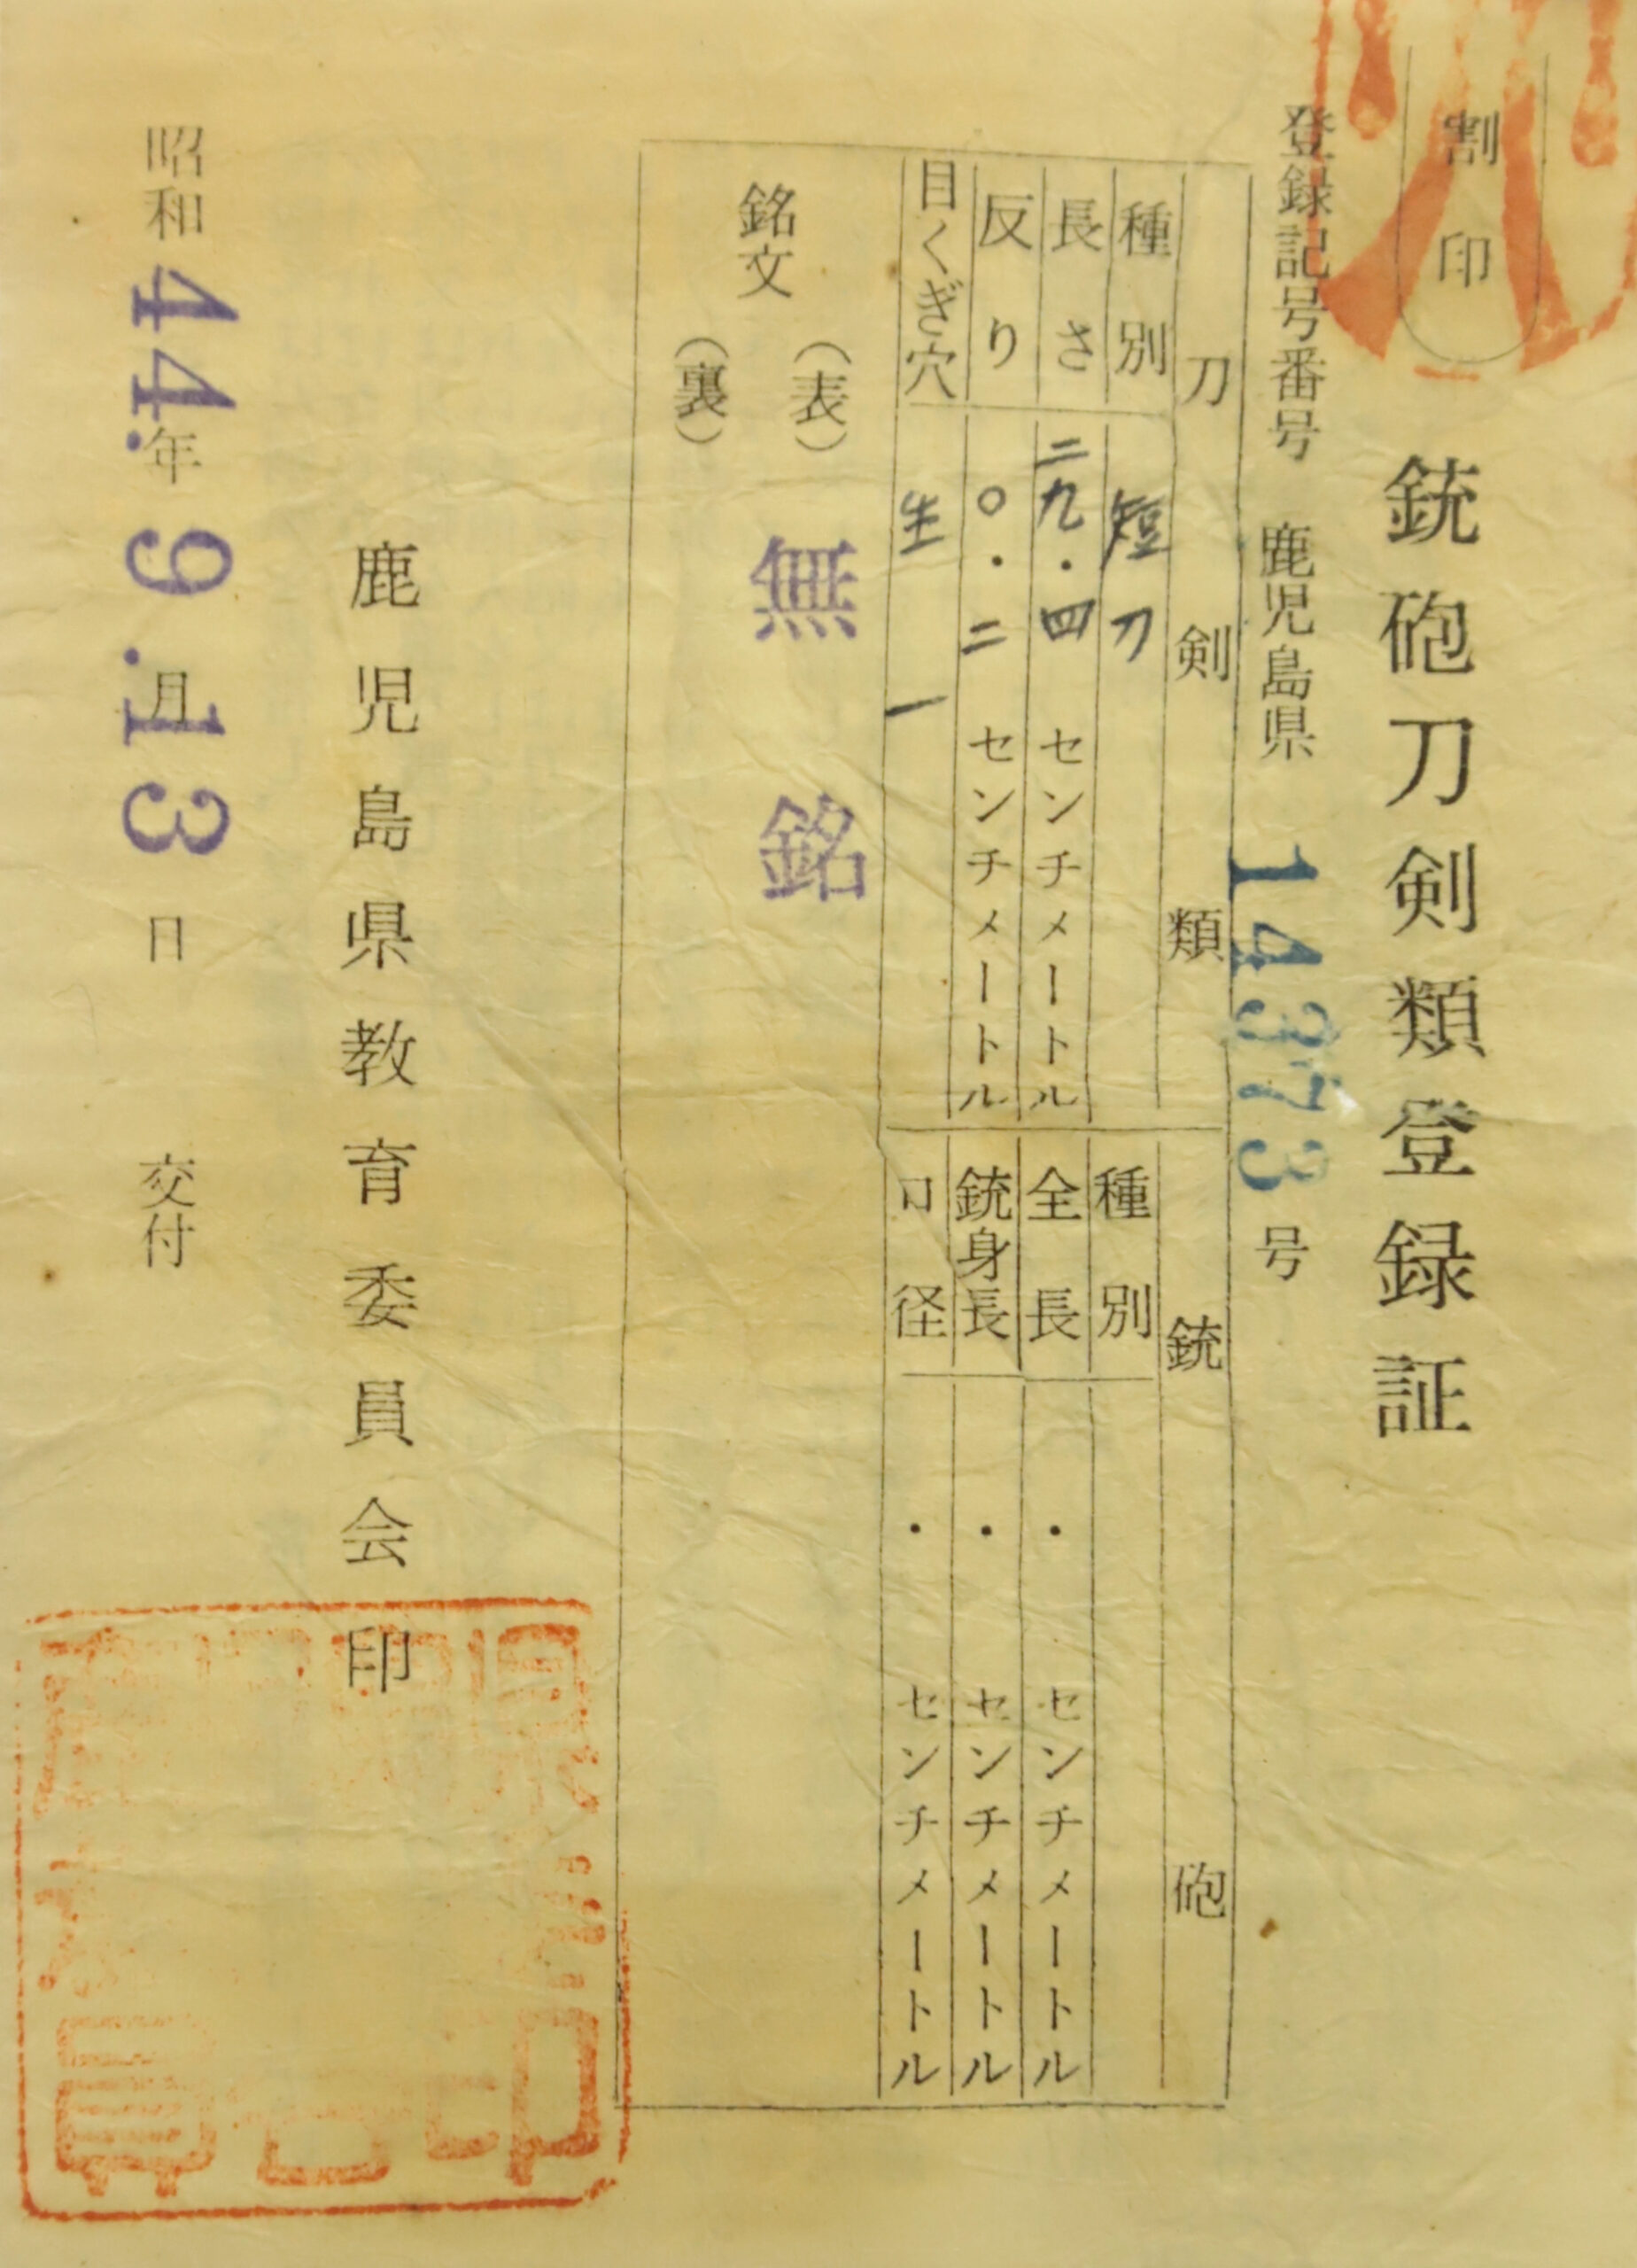 割印
銃砲刀剣類登録証
登録記号番号 鹿児島県 14373 号
刀剣類
種別 短刀
長さ 二九・四 センチメートル
反り 〇・二 センチメートル
目くぎ穴 生 一
銃砲
種別
全長 ・ センチメートル
銃身長 ・ センチメートル
口径 ・ センチメートル
銘文
(表) 無銘
(裏)
鹿児島県教育委員会 印
昭和44.年9.月13日 交付